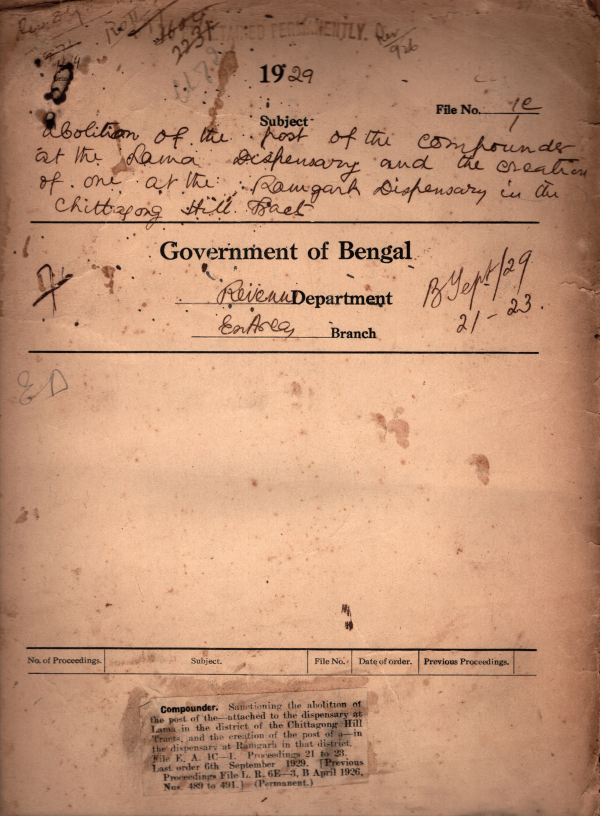 RETAINED PERMANENTLY.
1929
File No. 1C/1
Subject
Abolition of the post of the compounder
at the Lama Dispensary and the creation
of one at the Ramgarh Dispensary in the
Chittagong Hill Tract
Government of Bengal
Revenue Department
Branch
B Sept/29
21-23.
ED
No. of Proceedings. Subject. File No. Date of order. Previous Proceedings.
Compounder. Sanctioning the abolition of
the post of the—attached to the dispensary at
Lama in the district of the Chittagong Hill
Tracts, and the creation of the post of a—in
the dispensary at Ramgarh in that district.
File E. A. 1C—1. Proceedings 21 to 23.
Last order 6th September 1929. [Previous
Proceedings File L. R. 6E—3, B April 1926,
Nos. 489 to 491.] (Permanent.)